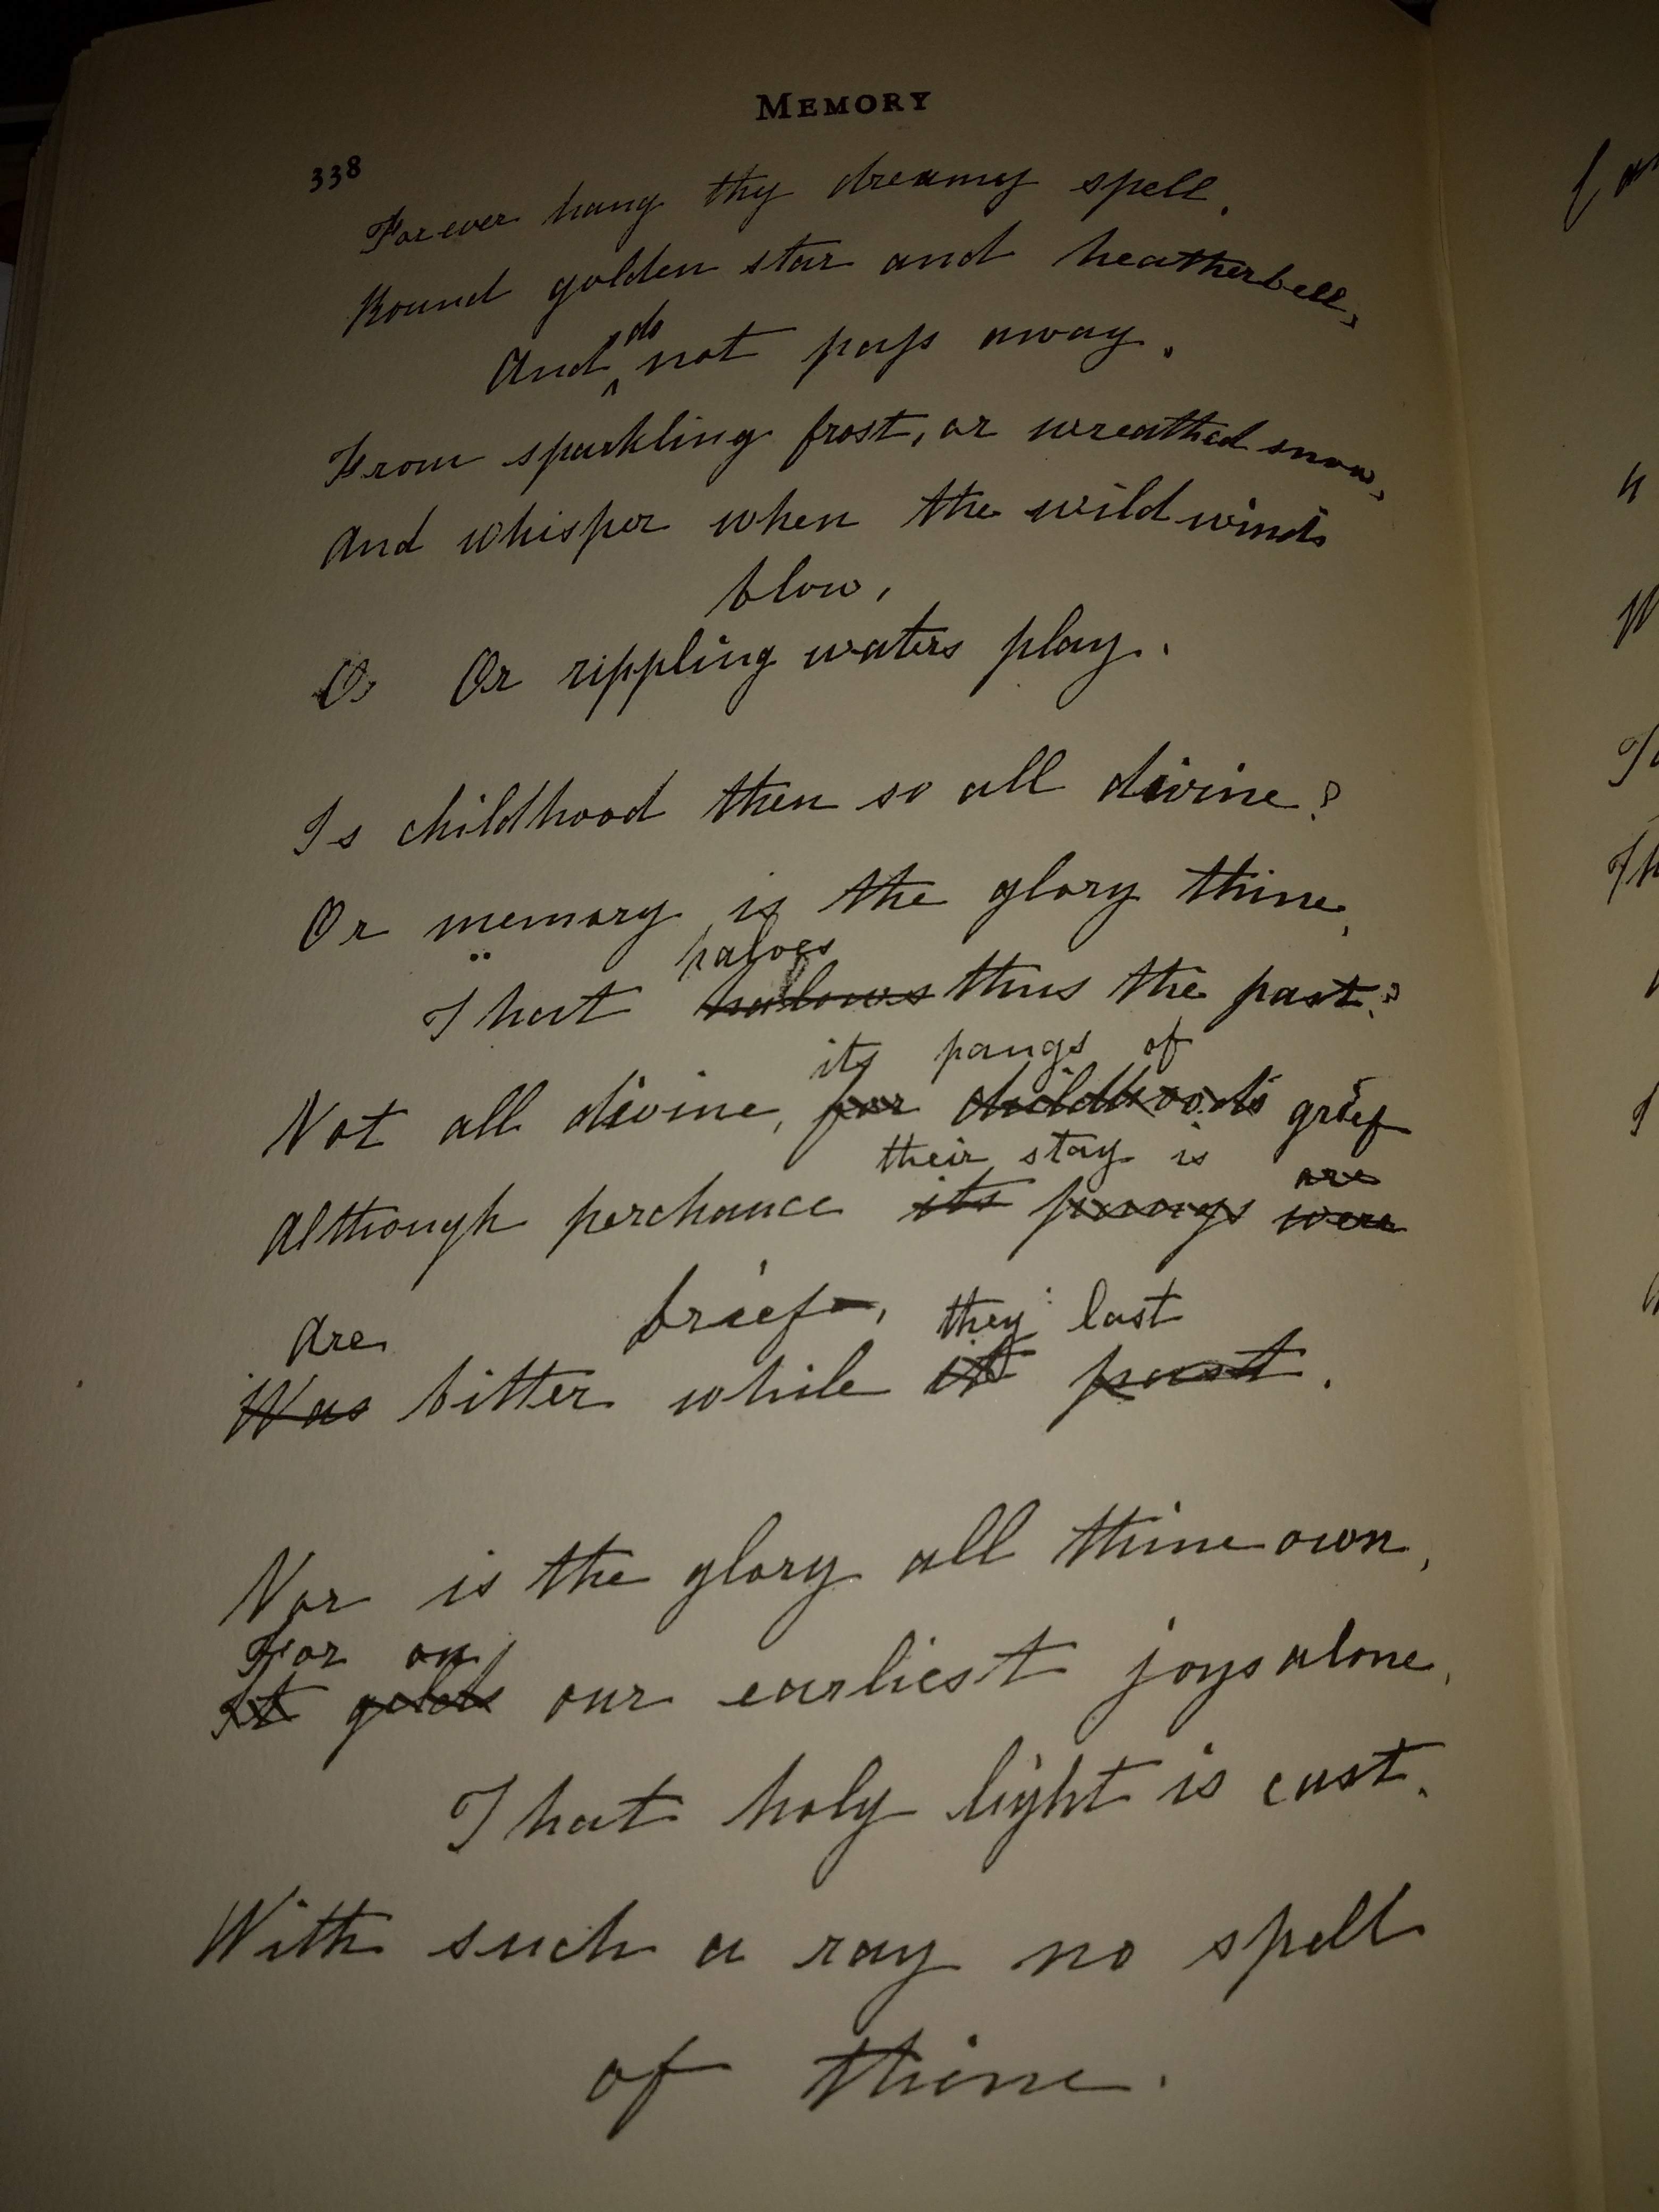 MEMORY
338
Forever hang thy dreamy spell,
Round golden star and heatherbell,
do
And ‸ not pass away.
From sparkling frost, or wreathed snow,
And whisper when the wild winds
blow,
Or rippling waters play.
Is childhood then so all divine?
Or memory is the glory thine,
haloes
That halows thus the past?
its pangs of
Not all divine, for childhood's grief
their stay is are
Although perchance its pangs were
brief, they last
Are
Was bitter while it past.
Nor is the glory all thine own,
For on
It gilds our earliest joys alone,
That holy light is cast.
With such a ray no spell
of thine.